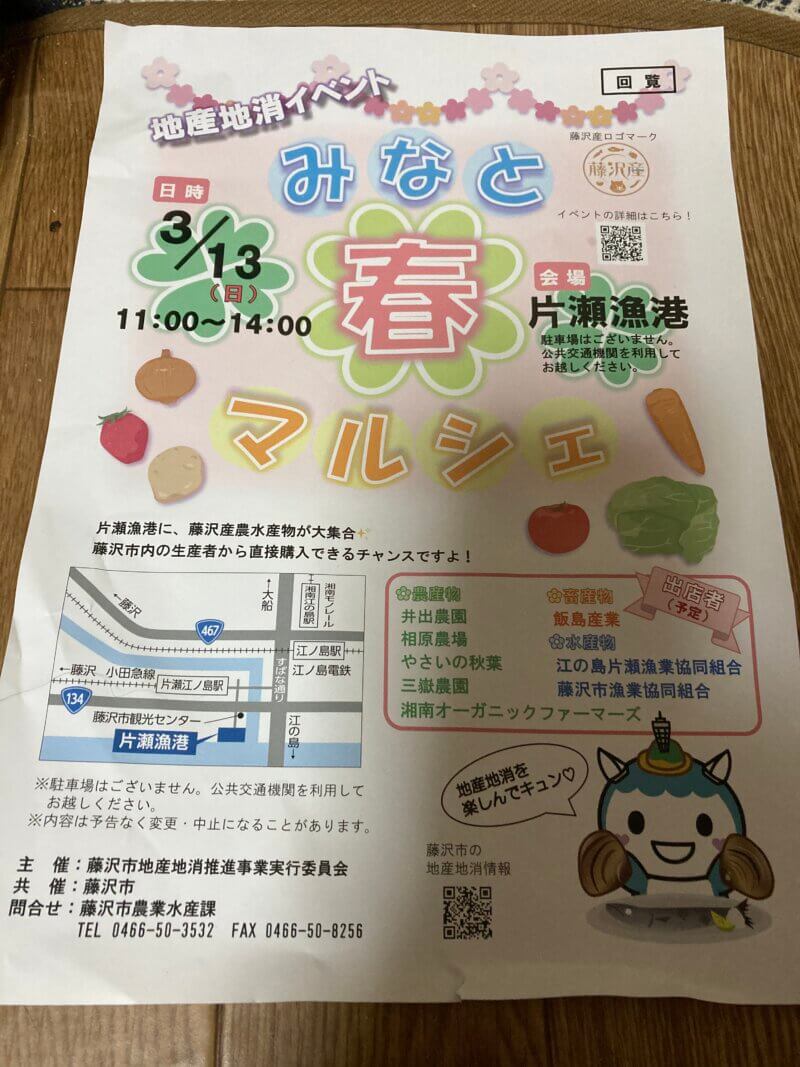 回覧
地産地消イベント
みなと
春
マルシェ
藤沢産ロゴマーク
藤沢産
イベントの詳細はこちら！
日時
3/13
(日)
11:00～14:00
会場
片瀬漁港
駐車場はございません。
公共交通機関を利用して
お越しください。
片瀬漁港に、藤沢産農水産物が大集合✨
藤沢市内の生産者から直接購入できるチャンスですよ！
←藤沢
467
↑大船
湘南モノレール
湘南江の島駅
江ノ島駅
江ノ島電鉄
すばな通り
←藤沢 小田急線
片瀬江ノ島駅
134
藤沢市観光センター
片瀬漁港
江の島↓
出店者
(予定)
農産物
井出農園
相原農場
やさいの秋葉
三嶽農園
湘南オーガニックファーマーズ
畜産物
飯島産業
水産物
江の島片瀬漁業協同組合
藤沢市漁業協同組合
※駐車場はございません。公共交通機関を利用して
お越しください。
※内容は予告なく変更・中止になることがあります。
地産地消を
楽しんでキュン♡
藤沢市の
地産地消情報
主 催：藤沢市地産地消推進事業実行委員会
共 催：藤沢市
問合せ：藤沢市農業水産課
TEL 0466-50-3532 FAX 0466-50-8256